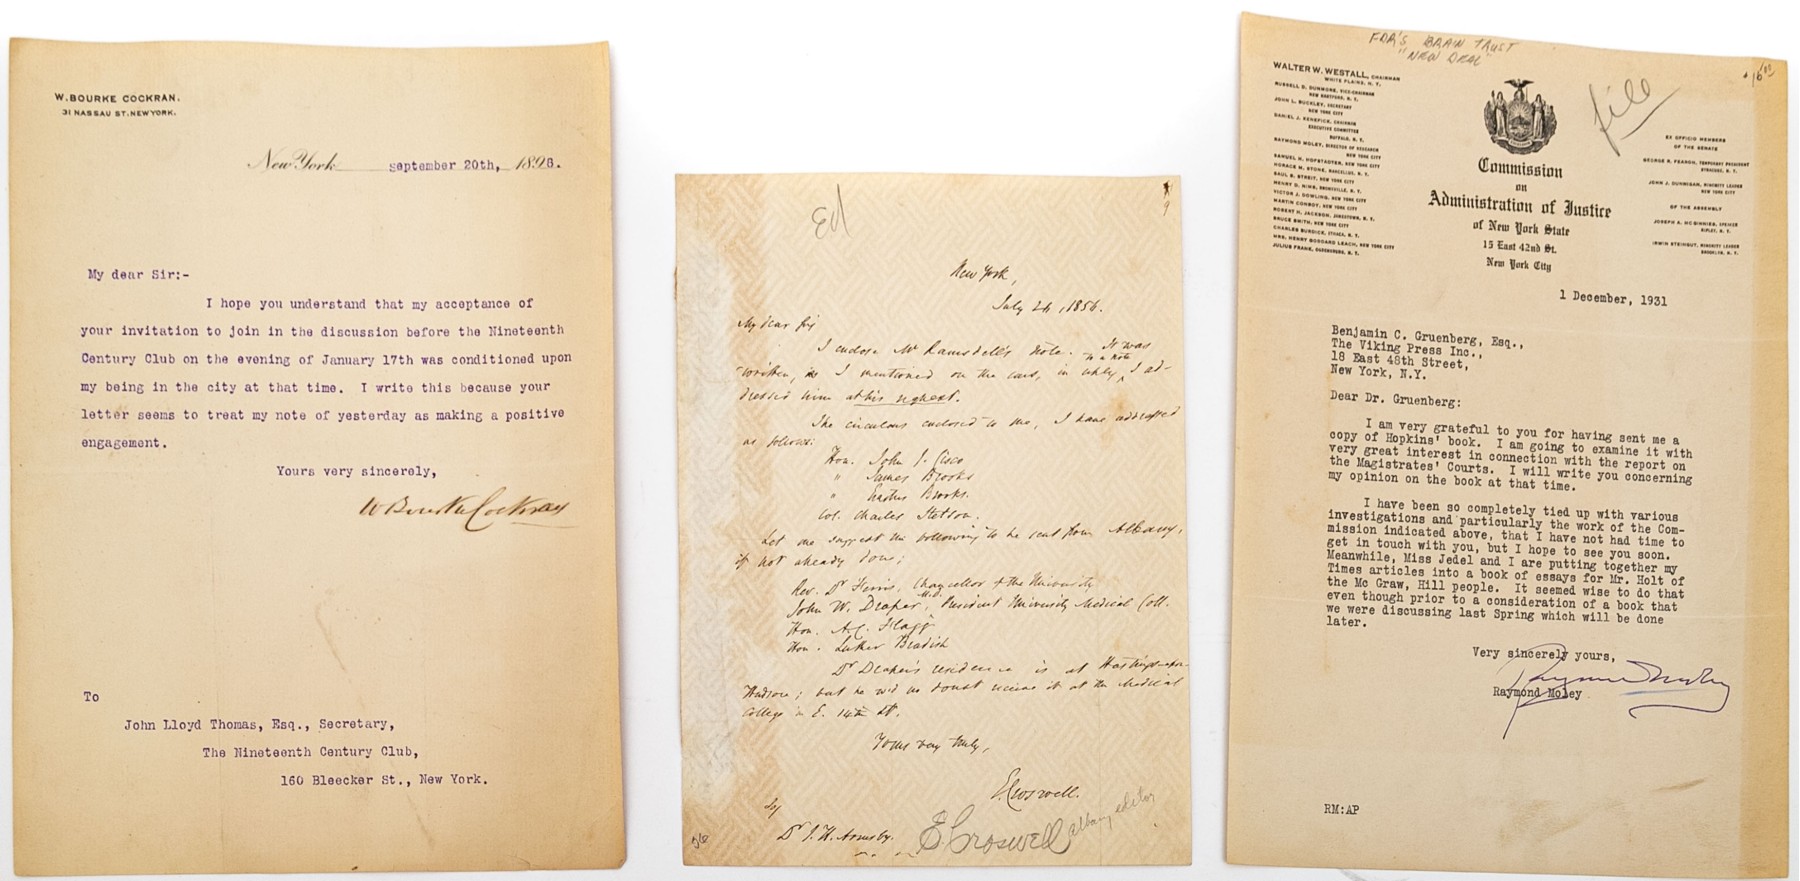 W. BOURKE COCKRAN.
31 NASSAU ST. NEW YORK.
New York september 20th, 1898.
My dear Sir:-
I hope you understand that my acceptance of
your invitation to join in the discussion before the Nineteenth
Century Club on the evening of January 17th was conditioned upon
my being in the city at that time. I write this because your
letter seems to treat my note of yesterday as making a positive
engagement.
Yours very sincerely,
W Bourke Cockran
To
John Lloyd Thomas, Esq., Secretary,
The Nineteenth Century Club,
160 Bleecker St., New York.
Ed
9
New York,
July 24, 1856.
My dear Sir
I enclose Mr Ramsdell's note. It was
written, as I mentioned on the cars, in reply to a note I ad-
dressed him at his request.
The circulars enclosed to me, I have addressed
as follows:
Hon. John J. Cisco
" James Brooks
" Erastus Brooks.
Col. Charles Stetson.
Let me suggest the following to be sent from Albany,
if not already done;
Rev. Dr Ferris, Chancellor of the University
John W. Draper, M.D. President University Medical Coll.
Hon. A.C. Flagg
Hon. Luther Bradish
Dr Draper's residence is at Hastings-upon-
Hudson; but he will no doubt receive it at the Medical
College in E. 14th St.
Yours very truly,
E. Croswell.
Dr J. H. Armsby.
E. Croswell Albany editor
56
FDR'S BRAIN TRUST
"NEW DEAL"
file
WALTER W. WESTALL, CHAIRMAN
WHITE PLAINS, N. Y.
RUSSELL D. DUNMORE, VICE-CHAIRMAN
NEW HARTFORD, N. Y.
JOHN L. BUCKLEY, SECRETARY
NEW YORK CITY
DANIEL J. KENEFICK, CHAIRMAN
EXECUTIVE COMMITTEE
BUFFALO, N. Y.
RAYMOND MOLEY, DIRECTOR OF RESEARCH
NEW YORK CITY
SAMUEL H. HOFSTADTER, NEW YORK CITY
HORACE M. STONE, MARCELLUS, N. Y.
SAUL S. STREIT, NEW YORK CITY
HENRY D. NIMS, BRONXVILLE, N. Y.
VICTOR J. DOWLING, NEW YORK CITY
MARTIN CONBOY, NEW YORK CITY
ROBERT H. JACKSON, JAMESTOWN, N. Y.
BRUCE SMITH, NEW YORK CITY
CHARLES BURDICK, ITHACA, N. Y.
MRS. HENRY GODDARD LEACH, NEW YORK CITY
JULIUS FRANK, OGDENSBURG, N. Y.
Commission
on
Administration of Justice
of New York State
15 East 42nd St.
New York City
EX OFFICIO MEMBERS
OF THE SENATE
GEORGE R. FEARON, TEMPORARY PRESIDENT
SYRACUSE, N. Y.
JOHN J. DUNNIGAN, MINORITY LEADER
NEW YORK CITY
OF THE ASSEMBLY
JOSEPH A. MCGINNIES, SPEAKER
RIPLEY, N. Y.
IRWIN STEINGUT, MINORITY LEADER
BROOKLYN, N. Y.
1 December, 1931
Benjamin C. Gruenberg, Esq.,
The Viking Press Inc.,
18 East 48th Street,
New York, N.Y.
Dear Dr. Gruenberg:
I am very grateful to you for having sent me a
copy of Hopkins' book. I am going to examine it with
very great interest in connection with the report on
the Magistrates' Courts. I will write you concerning
my opinion on the book at that time.
I have been so completely tied up with various
investigations and particularly the work of the Com-
mission indicated above, that I have not had time to
get in touch with you, but I hope to see you soon.
Meanwhile, Miss Jedel and I are putting together my
Times articles into a book of essays for Mr. Holt of
the Mc Graw, Hill people. It seemed wise to do that
even though prior to a consideration of a book that
we were discussing last Spring which will be done
later.
Very sincerely yours,
Raymond Moley
Raymond Moley
RM:AP